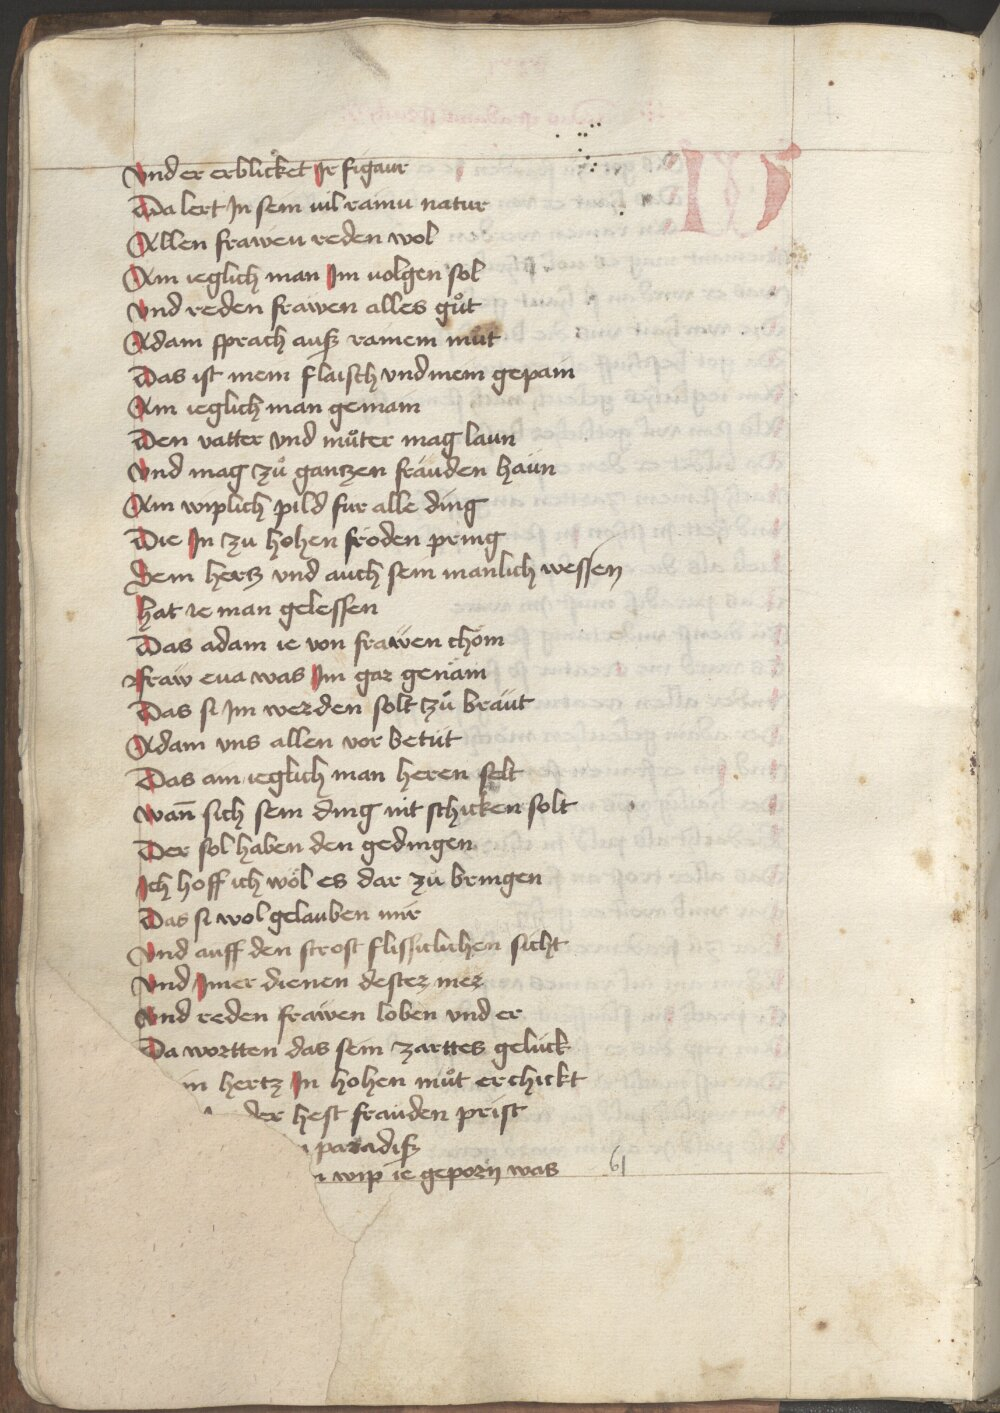 Vnd er erblicket Ir figaur
Da lert In sein uil rainu natur
Allen frawen reden wol
Ain ieglich man Im uolgen sol
Vnd reden frawen alles gůt
Adam sprach auß rainem můt
Das ist mein flaisch vnd mein gepain
Ain ieglich man gemain
Den vatter vnd můter mag laun
Vnd mag zů gantzen fräuden haün
Ain wiplich pild fur alle ding
Die In zu hohen fröden pring
Sein hertz vnd auch sein manlich wessen
hat ie man gelessen
Das adam ie von frawen chöm
Fraw eua was Im gar genäm
Das si Im werden solt zů braüt
Adam vns allen vor betüt
Das ain ieglich man heren selt
Wañ sich sein ding nit schicken solt
Der sol haben den gedingen
Ich hoff ich wöl es dar zů bringen
Das si wol gelauben mir
Vnd auff den strost sicht
Vnd Imer dienen dester mer
Vnd reden frawen loben vnd er
Da wortten das sein zarttes gelück
in hertz In hohen můt erchickt
der hest fräuden prist
paradiß
wip ie geporn was 61